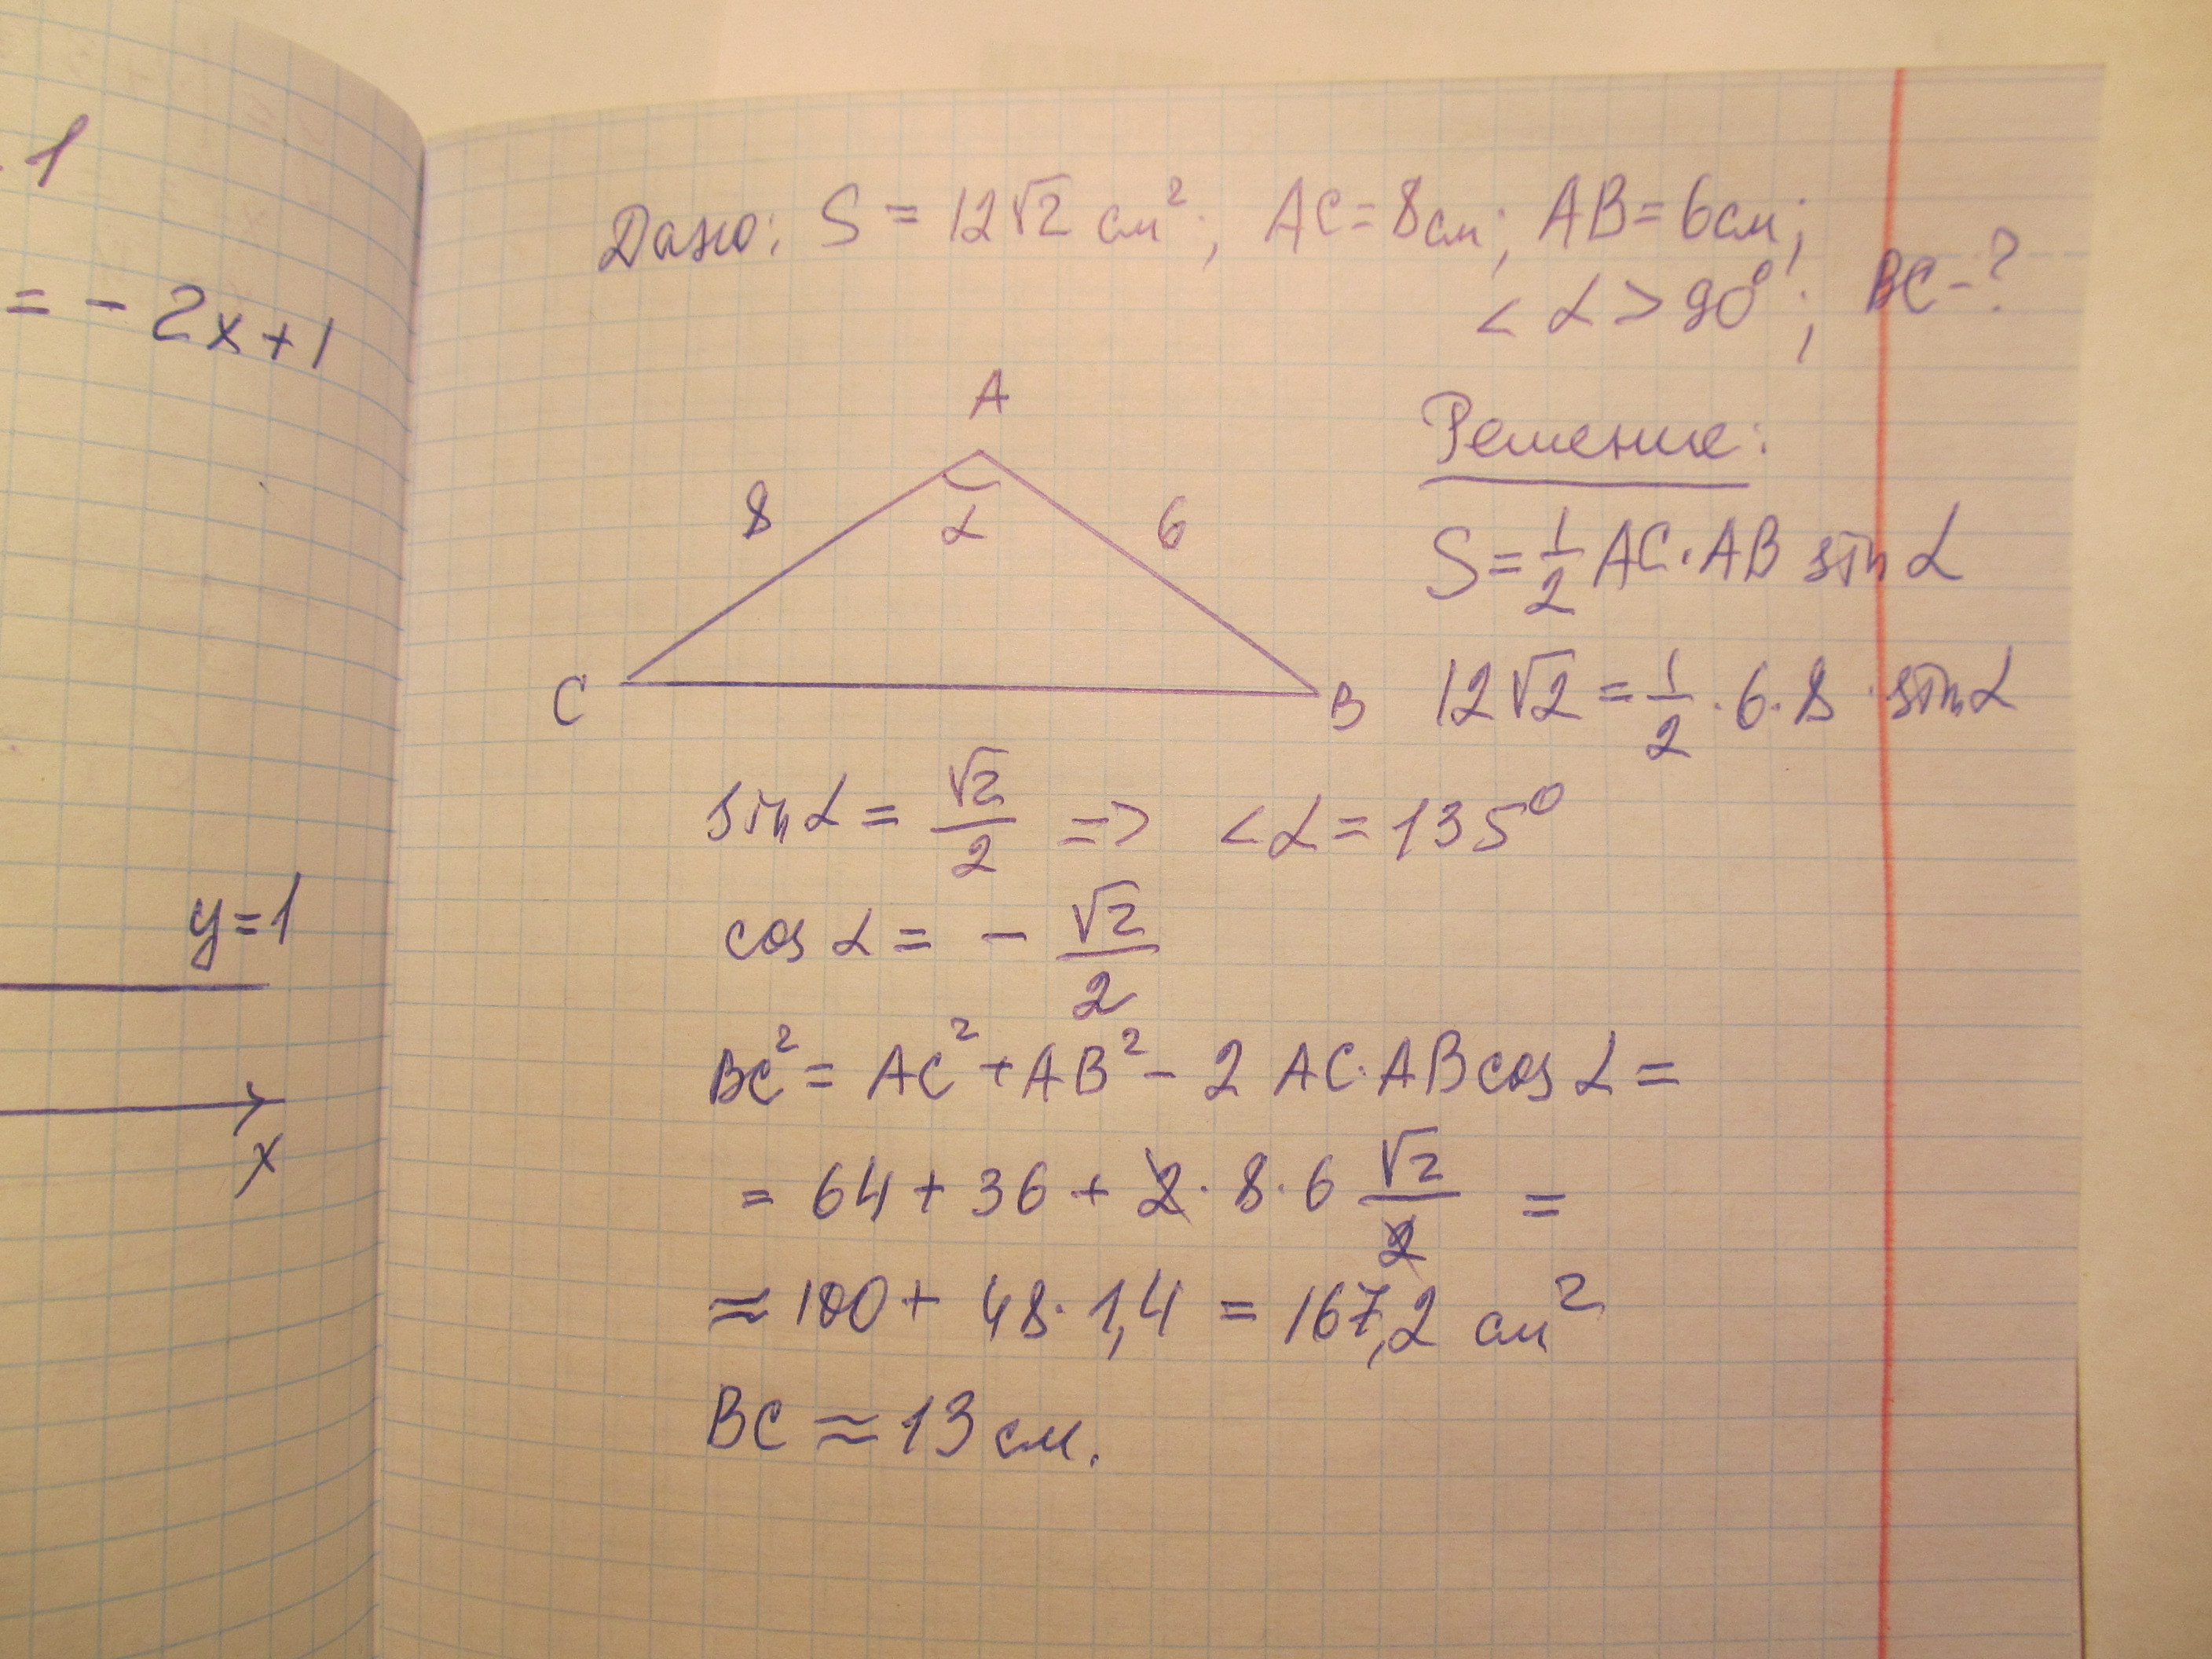 . 1
= - 2x+1
y=1
x
Дано: S = 12√2 см²; AC=8см; AB=6см;
< α > 90°; BC-?
A
8
α
6
C
B
Решение:
S = 1/2 AC·AB sin α
12√2 = 1/2 · 6 · 8 · sin α
sin α = √2/2 => < α = 135°
cos α = - √2/2
BC² = AC² + AB² - 2 AC·AB cos α =
= 64 + 36 + 2 · 8 · 6 √2/2 =
≈ 100 + 48 · 1,4 = 167,2 см²
BC ≈ 13 см.